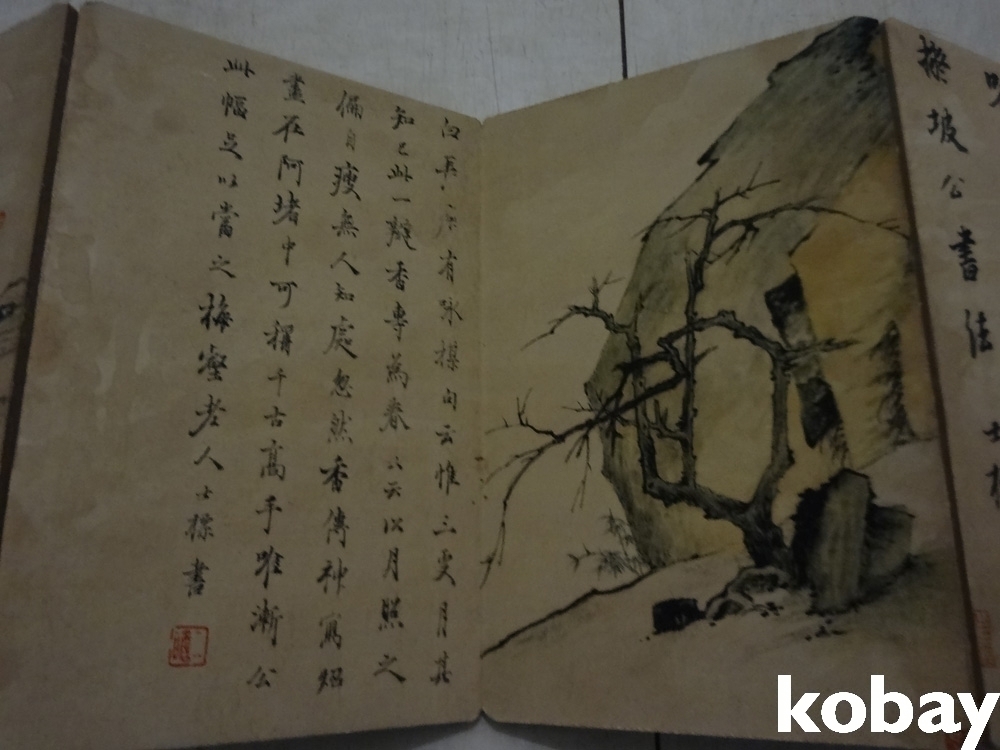 坡公書法
有咏梅句云惟三更月其
知己此一瓣香專為春又云以月照之
偏自瘦無人知處忽然香傳神寫照
盡在阿堵中可稱千古高手唯漸公
此幅足以當之梅壑老人士標書
kobay